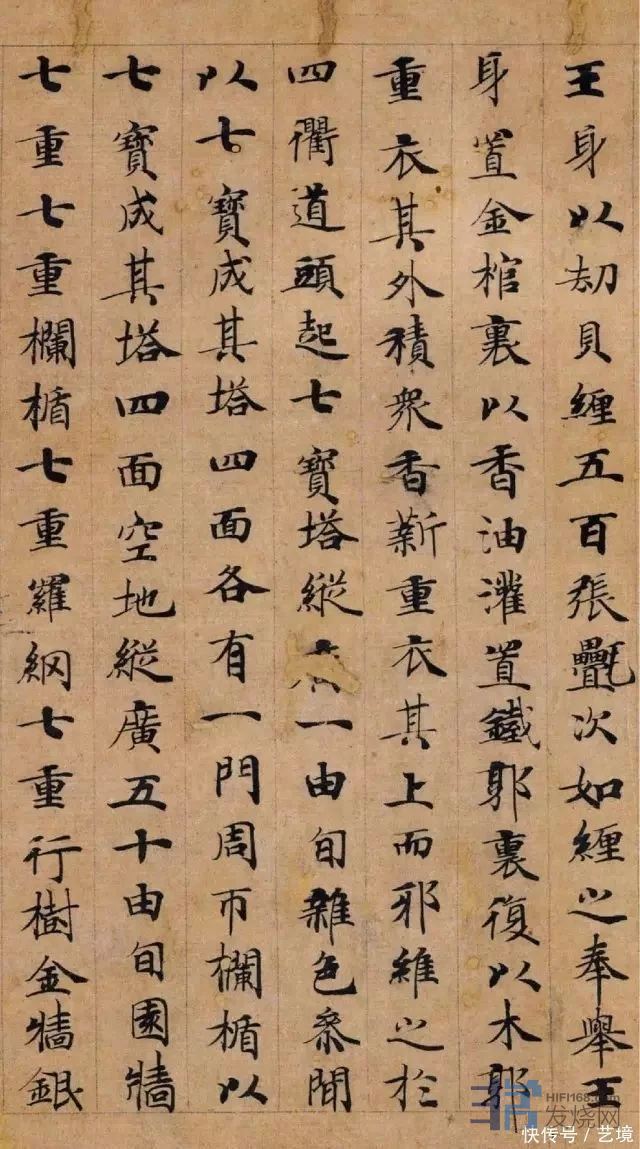 王身以劫貝纏五百張㲲次如纏之奉舉王
身置金棺裏以香油灌置鐵郭裏復以木郭
重衣其外積衆香薪重衣其上而邪維之於
四衢道頭起七寶塔縱一由旬雜色叅閒
以七寶成其塔四面各有一門周帀欄楯以
七寶成其塔四面空地縱廣五十由旬園牆
七重七重欄楯七重羅網七重行樹金牆銀
HIFI168.com
发烧网
快传号 / 艺境